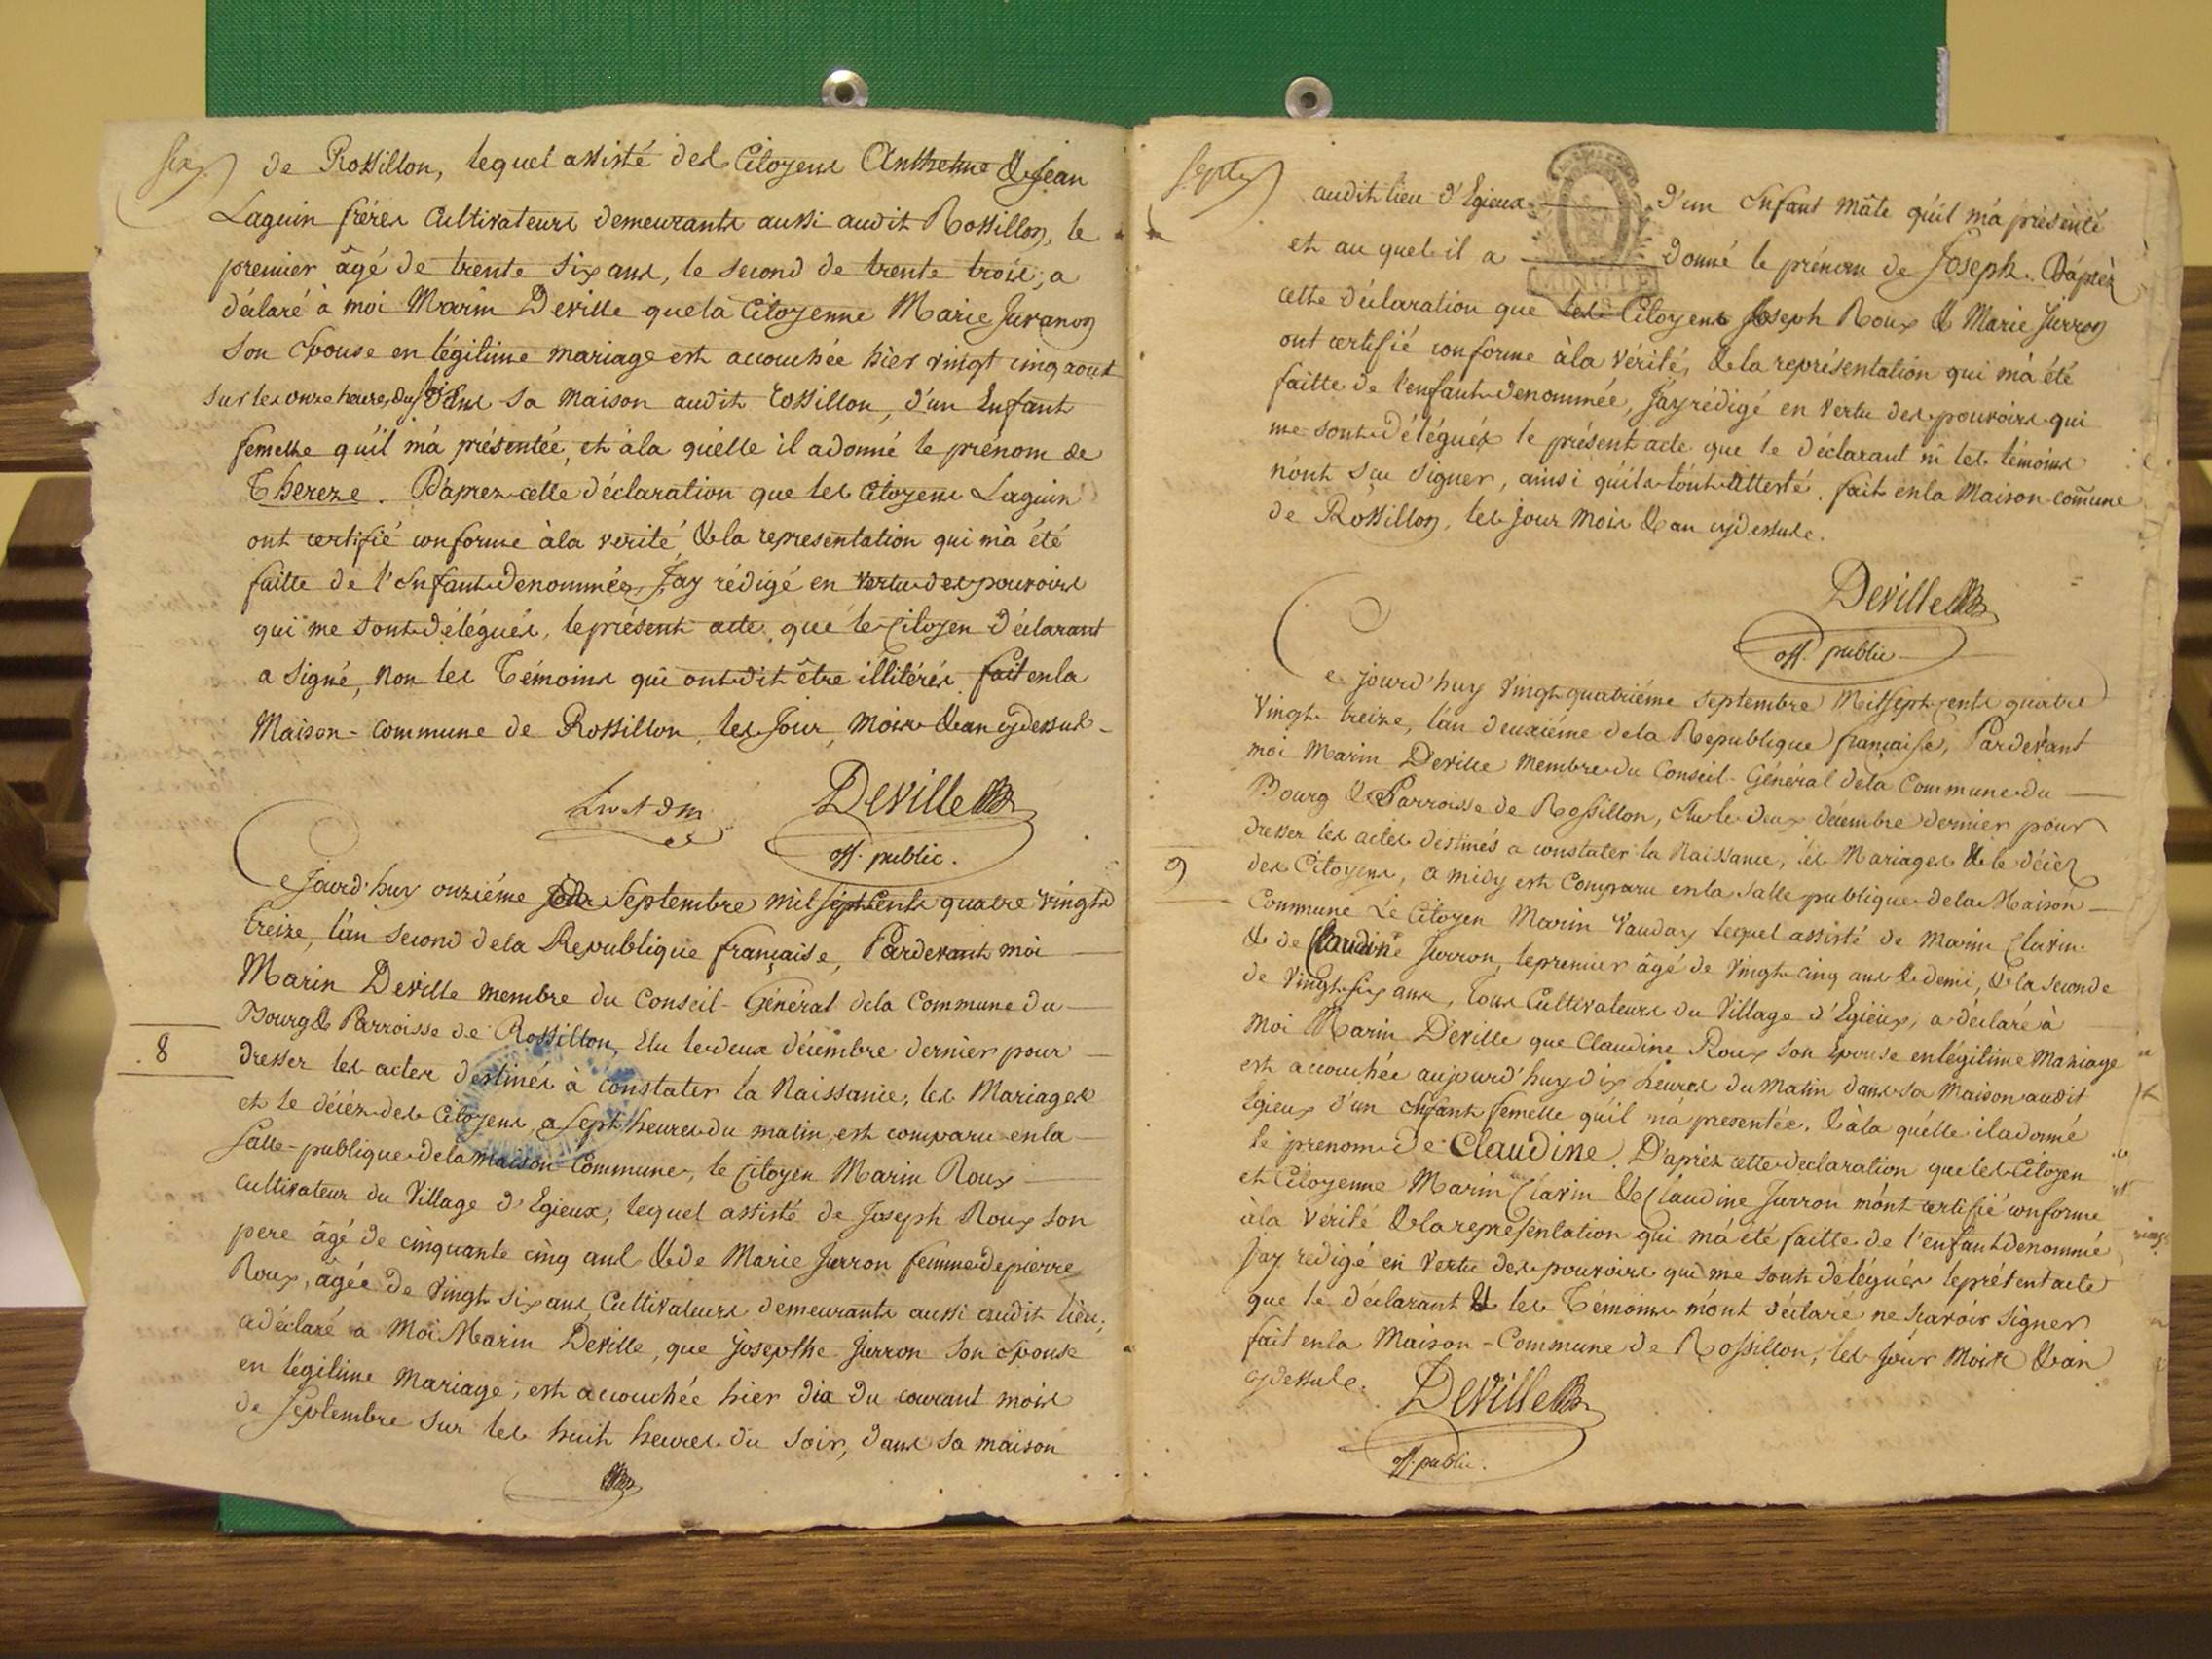 six
de Rossillon, lequel assisté des Citoyens Anthelme & Jean
Laguin fréres Cultivateurs demeurants aussi audit Rossillon, le
premier âgé de trente six ans, le second de trente trois, a
déclaré à moi Marin Deville que la Citoyenne Marie Juvanon
son Epouse en légitime mariage est accouchée hier vingt cinq aout
sur les onze heures du soir dans sa maison audit Rossillon, d'un Enfant
femelle qu'il m'a présentée, et à la quélle il a donné le prénom de
Thereze. D'aprez cette déclaration que les Citoyens Laguin
ont certifié conforme à la verité, & la representation qui m'a été
faitte de l'Enfant denommée, J'ay rédigé en vertu des pouvoirs
qui me sont délégués, le présent acte, que le Citoyen déclarant
a signé, non les Témoins qui ont dit être illitérés. fait en la
Maison-commune de Rossillon, les Jour, mois & an cy dessus.
Deville
off. public.
Ce jourd'huy onziéme Septembre mil sept cents quatre vingts
treize, l'an second de la Republique française, Pardevant moi
Marin Deville membre du Conseil-Général de la Commune du
Bourg & Parroisse de Rossillon, Elu le deux décembre dernier pour
8
dresser les actes destinés à constater la Naissance, les Mariages
et le décéz des Citoyens, a sept heures du matin, est comparu en la
Salle-publique de la maison Commune, le Citoyen Marin Roux
cultivateur du Village d'Egieux, lequel assisté de Joseph Roux son
pere âgé de cinquante cinq ans & de Marie Jurron femme de pierre
Roux, âgée de vingt six ans Cultivateurs demeurants aussi audit lieu;
a déclaré a Moi Marin Deville, que Josepthe Jurron son Epouse
en légitime Mariage, est accouchée hier dix du courant mois
de Septembre sur les huit heures du soir, dans sa maison
Sept
audit lieu d'Egieux d'un Enfant mâle qu'il m'a présenté
et au quel il a donné le prénom de Joseph. D'après
MINUTE
cette déclaration que les Citoyens Joseph Roux & Marie Jurron
ont certifié conforme à la vérité, & la représentation qui m'a été
faitte de l'enfant denommée, J'ay rédigé en vertu des pouvoirs qui
me sont délégués le présent acte que le déclarant ni les témoins
n'ont sçu signer, ainsi qu'ils l'ont attesté. fait en la Maison commune
de Rossillon, les jour mois & an cy dessus.
Deville
off. public
Ce jourd'huy vingt quatriéme septembre Mil sept cents quatre
vingt treize, l'an deuxiéme de la Republique française, Pardevant
moi Marin Deville membre du Conseil-Général de la Commune du
Bourg & Parroisse de Rossillon, Elu le deux décembre dernier pour
dresser les actes destinés a constater la Naissance, les Mariages & le décéz
9
des Citoyens, a midy est Comparu en la salle publique de la Maison
Commune Le Citoyen Marin Vauday lequel assisté de Marin Clavin
& de Claudine Jurron, le premier âgé de vingt cinq ans & demi, & la seconde
de vingt six ans, Tous Cultivateurs du Village d'Egieux, a déclaré à
Moi Marin Deville que Claudine Roux son Epouse en légitime Mariage
est accouchée aujourd'huy dix heures du matin dans sa Maison audit
Egieux d'un Enfant femelle qu'il m'a presentée, & à la quélle il a donné
le prenom de Claudine. D'aprez cette declaration que les Citoyen
et Citoyenne Marin Clavin & Claudine Jurron m'ont certifié conforme
à la Vérité & la representation qui m'a été faitte de l'enfant denommé
J'ay redigé en vertu des pouvoirs qui me sont délégués le présent acte
que le déclarant & les Témoins m'ont déclaré ne sçavoir signer
fait en la Maison-Commune de Rossillon, les jour mois & an
cy dessus.
Deville
off. public.